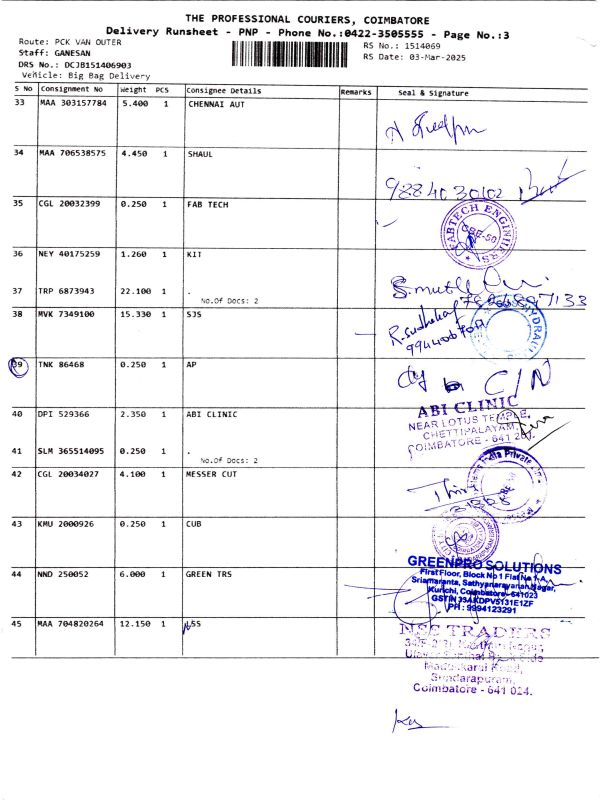 THE PROFESSIONAL COURIERS, COIMBATORE
Delivery Runsheet - PNP - Phone No.:0422-3505555 - Page No.:3
Route: PCK VAN OUTER
RS No.: 1514069
Staff: GANESAN
RS Date: 03-Mar-2025
DRS No.: DCJB151406903
Vehicle: Big Bag Delivery
S No Consignment No Weight PCS Consignee Details Remarks Seal & Signature
33 MAA 303157784 5.400 1 CHENNAI AUT
34 MAA 706538575 4.450 1 SHAUL
9884030102
35 CGL 20032399 0.250 1 FAB TECH
FABTECH ENGINEERS
CBE-50
36 NEY 40175259 1.260 1 KIT
37 TRP 6873943 22.100 1 .
No.Of Docs: 2
38 MVK 7349100 15.330 1 SJS
39 TNK 86468 0.250 1 AP
C/N
40 DPI 529366 2.350 1 ABI CLINIC
ABI CLINIC
NEAR LOTUS TEMPLE,
CHETTIPALAYAM,
COIMBATORE - 641 201.
41 SLM 365514095 0.250 1 .
No.Of Docs: 2
42 CGL 20034027 4.100 1 MESSER CUT
India Private
43 KMU 2000926 0.250 1 CUB
44 NND 250052 6.000 1 GREEN TRS
GREENPRO SOLUTIONS
First Floor, Block No 1 Flat No 1-A,
Sriamaranta, Sathyanarayanan Nagar,
Kurichi, Coimbatore- 641023
GSTIN 33AKDPV5131E1ZF
PH : 9994123291
45 MAA 704820264 12.150 1 LSS
TRADERS
Road,
Sundarapuram,
Coimbatore - 641 024.